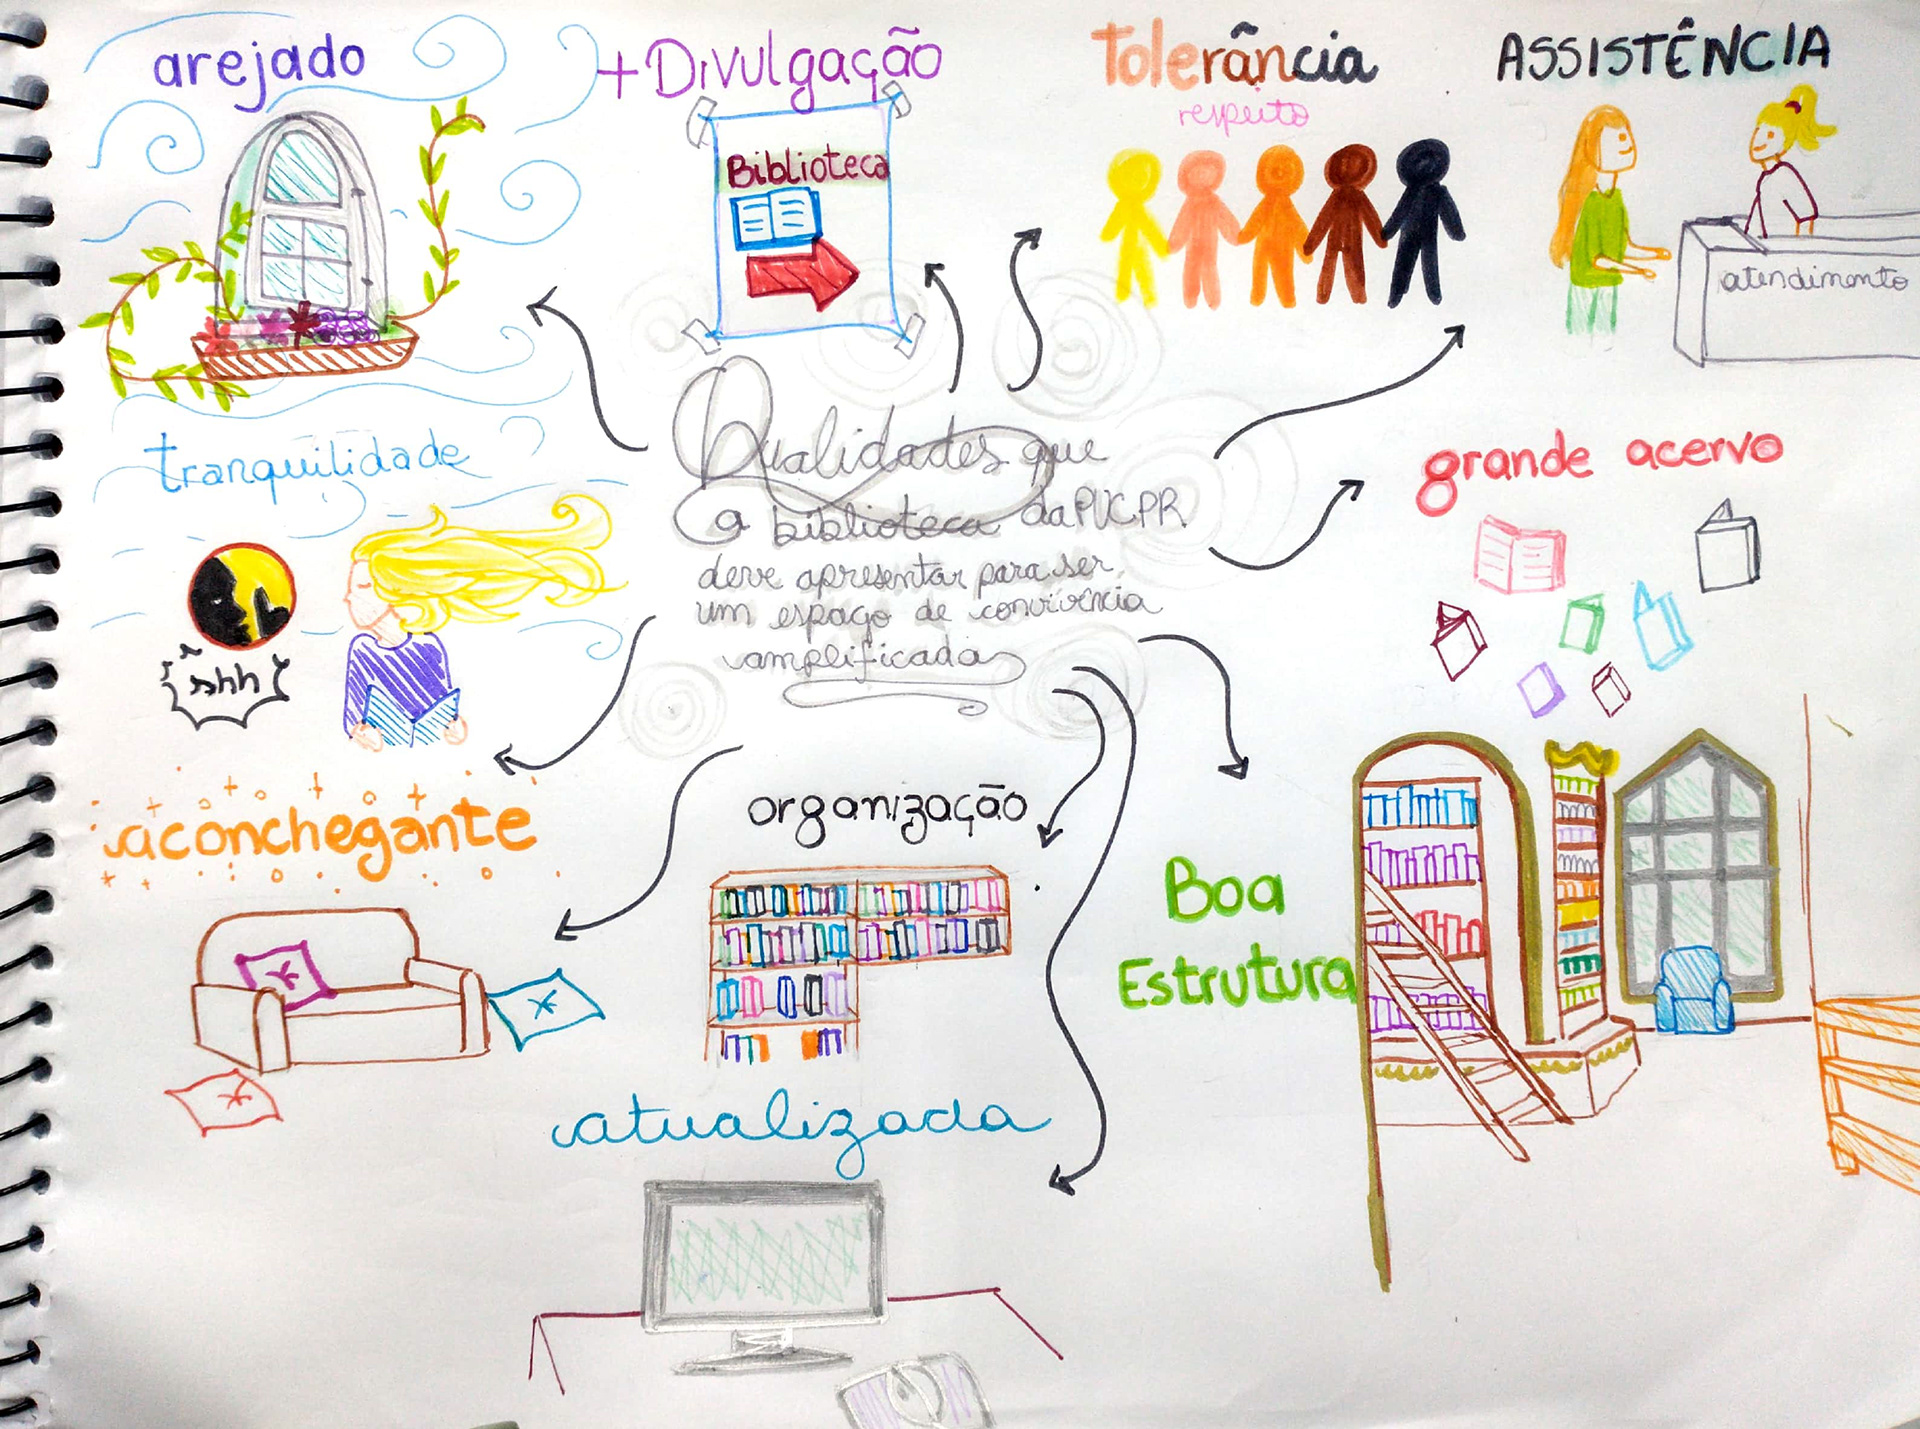 arejado
+ Divulgação
Biblioteca
Tolerância
respeito
ASSISTÊNCIA
atendimento
Qualidades que
a biblioteca da PUCPR
deve apresentar para ser
um espaço de convivência
amplificada
tranquilidade
shh
grande acervo
aconchegante
organização
Boa
Estrutura
atualizada